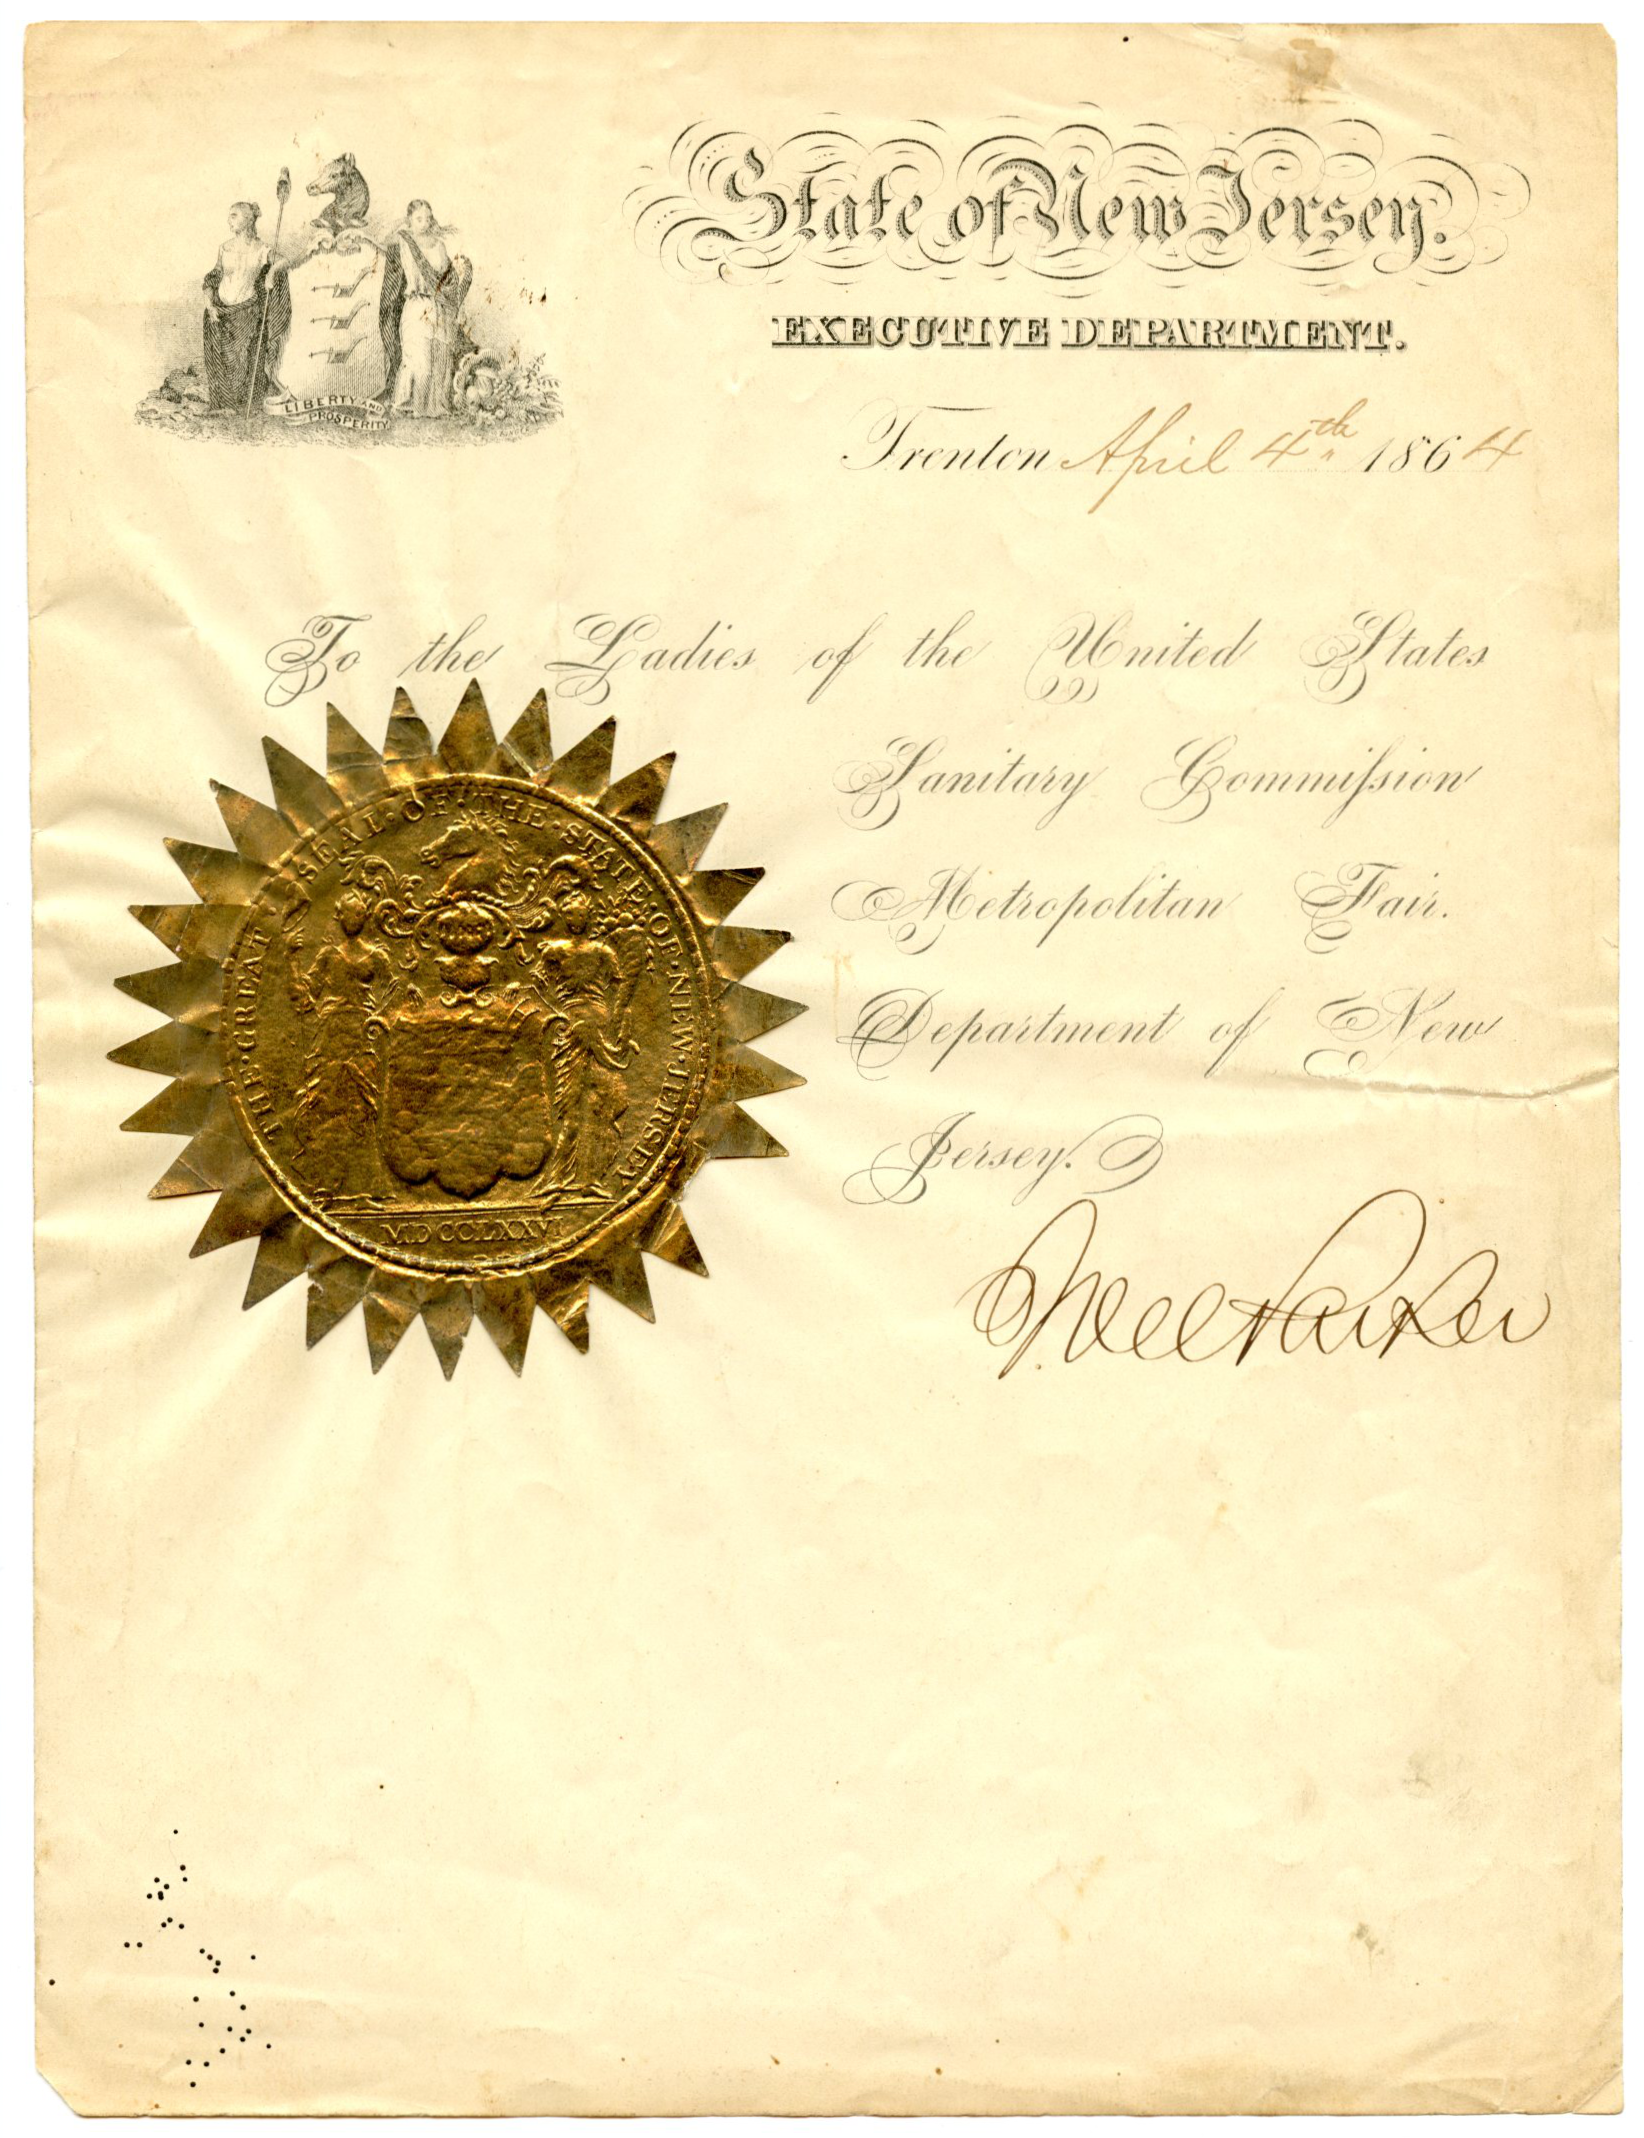 State of New Jersey.
EXECUTIVE DEPARTMENT.
LIBERTY AND
PROSPERITY
Trenton April 4th 1864
To the Ladies of the United States
Sanitary Commiſsion
Metropolitan Fair.
Department of New
Jersey.
THE·GREAT·SEAL·OF·THE·STATE·OF·NEW·JERSEY
MDCCLXXVI
Joel Parker